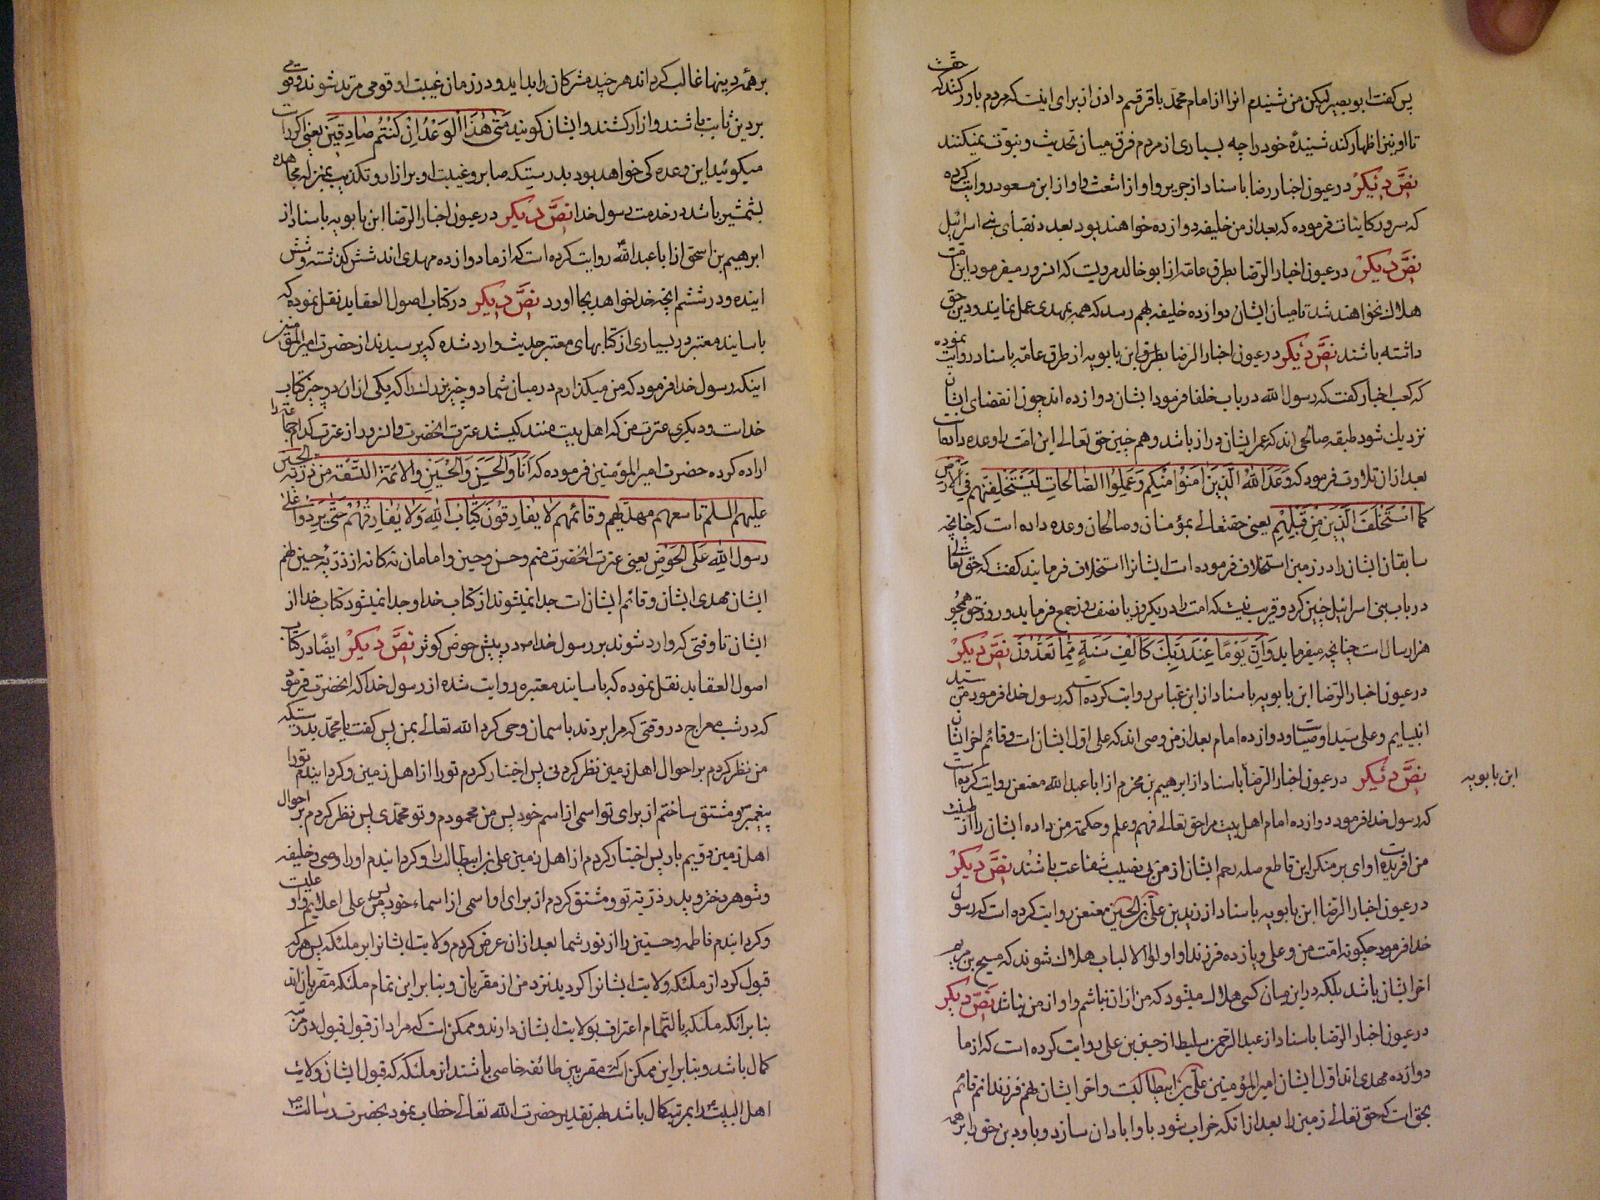 پس گفت ابو بصیر لیکن من شنیدم انرا از امام محمد باقر قسم دادن از برای اینست که مردم باور کنند که حقست
تا او نیز اظهار کند شنیدهٔ خود را چه بسیاری از مردم فرق میان تحدیث و نبوت نمیکنند
نصّ دیکر در عیون اخبار رضا باسناد از جریر و او از اشعث و او از ابن مسعود روایت کرده
که سرور کاینات فرموده که بعد از من خلیفه دوازده خواهند بود بعدد نقبای بنی اسرائیل
نصّ دیکر در عیون اخبار الرّضا بطرق عامه از ابو خالد مرویست که انسرور میفرمود این امت
هلاك نخواهند شد تا میان ایشان دوازده خلیفه بهم رسد که همه بهدی عمل نمایند و دین حق
داشته باشند نصّ دیکر در عیون اخبار الرّضا بطرق ابن بابویه از طرق عامّه باسناد روایت نموده
که کعب اخبار کفت که رسول الله در باب خلفا فرمود ایشان دوازده اند چون انقضای ایشان
نزدیك شود طبقه صالحی اند که عمر ایشان دراز باشد و هم چنین حق تعالی این امت را وعده داده است
بعد ازان تلاوت فرمود که وَعَدَ اللهُ الَّذِینَ امَنُوا مِنْکُمْ وَعَمِلُوا الصَّالِحَاتِ لَیَسْتَخْلِفَنَّهُم فِی الْاَرْضِ
کَمَا اسْتَخْلَفَ الَّذِینَ مِنْ قَبْلِهِمْ یعنی حقتعالی بمؤمنان و صالحان وعده داده است که چنانچه
سابقان ایشان را در زمین استخلاف فرموده است ایشانرا استخلاف فرمایند کفت که حق تعالی
در باب بنی اسرائیل چنین کرد و قریب نیست که امت را در یکروز یا نصف روز جمع فرماید و روز حق همچو
هزار سال است چنانچه میفرماید وَاِنَّ یَوْمًا عِنْدَ رَبِّكَ کَاَلْفِ سَنَةٍ مِمَّا تَعُدُّونَ نصّ دیکر
در عیون اخبار الرّضا ابن بابویه باسناد از ابن عباس روایت کرده است که رسول خدا فرمود من سیّد
انبیایم و علی سیّد اوصیاست و دوازده امام بعد از من وصی اند که علی اوّل ایشان است و قائم اخر ایشان
نصّ دیکر در عیون اخبار الرّضا باسناد از ابرهیم بن مخرم از ابا عبد الله معنعن روایت کرده است
ابن بابویه
که رسول خدا فرمود دوازده امام اهل بیت مرا حق تعالی فهم و علم و حکمت من داده ایشان را از طینت
من افریده است وای بر منکر این قاطع صله رحم ایشان از من بی نصیب شفاعت باشند نصّ دیکر
در عیون اخبار الرّضا ابن بابویه باسناد از زید بن علی بن الحسین معنعن روایت کرده است که رسول
خدا فرمود چکونه امّت من و علی و یازده فرزند او اولوا الالباب هلاك شوند که مسیح بن مریم
اخر ایشان باشد بلکه در این میان کسی هلاك میشود که من ازان نباشم و او از من نباشد نصّ دیکر
در عیون اخبار الرّضا باسناد از عبد الرّحمن سلیط از حسین بن علی روایت کرده است که از ما
دوازده مهدی اند اوّل ایشان امیر المؤمنین علی بن ابیطالب است و اخر ایشان نهم فرزندانم قائم
بحق است که حق تعالی زمین را بعد از انکه خراب شود باو ابادان سازد و باو دین حق را بر همه
بر همه دینها غالب کرداند هر چند مشرکان را بد اید و در زمان غیبت او قومی مرتد شوند و قومی
بر دین ثابت باشند و ازار کشند و ایشان کویند مَتَی هٰذَا الْوَعْدُ اِنْ کُنْتُمْ صَادِقِینَ یعنی اکر راست
میکوئید این وعده کی خواهد بود بدرستیکه صابر و غیبت او بر ازار و تکذیب بمنزله مجاهده
بشمشیر باشد در خدمت رسول خدا نصّ دیکر در عیون اخبار الرّضا ابن بابویه باسناد از
ابرهیم بن اسحق از ابا عبد الله روایت کرده است که از ما دوازده مهدی اند شش کذشته و شش
اینده و در ششم انچه خدا خواهد بجا اورد نصّ دیکر در کتاب اصول العقاید نقل نموده که
باسانید معتبر در بسیاری از کتابهای معتبر حدیث وارد شده که پرسیدند از حضرت امیر المؤمنین
اینکه رسول خدا فرمود که من میکذارم در میان شما دو چیز بزرك را که یکی از ان دو چیز کتاب
خداست و دیکری عترت من که اهل بیت منند کیستند عترت انحضرت و انسرور از عترت کدام جماعة را
اراده کرده حضرت امیر المؤمنین فرموده که اَنَا وَالْحَسَنُ وَالْحُسَیْنُ وَالاَئِمَّةُ التِّسْعَةُ مِنْ ذُرِّیَّةِ الحسین
علیهم السلم تاسعهم مهدیّهم و قائمهم لَا یُفَارِقُونَ کِتَابَ اللهِ وَلَا یُفَارِقُهُمْ حَتَّی یَرِدُوا عَلَی
رسول اللهِ عَلَی الحَوْضِ یعنی عترت انحضرت منم و حسن و حسین و امامان نه کانه از ذرّیّه حسین نهم
ایشان مهدی ایشان و قائم ایشان است جدا نمیشوند از کتاب خدا و جدا نمیشود کتاب خدا از
ایشان تا وقتی که وارد شوند بر رسول خدا در پیش حوض کوثر نصّ دیکر ایضًا در کتاب
اصول العقاید نقل نموده که باسانید معتبره روایت شده از رسول خدا که انحضرت فرمود
که در شب معراج در وقتی که مرا بردند باسمان وحی کرد الله تعالی بمن پس کفت یا محمّد بدرستیکه
من نظر کردم بر احوال اهل زمین نظر کردنی پس اختیار کردم تو را از اهل زمین و کردانیدم تو را
پیغمبر و مشتق ساختم از برای تو اسمی از اسم خود پس من محمودم و تو محمّدی پس نظر کردم بر احوال
اهل زمین دویم بار پس اختیار کردم از اهل زمین علی بن ابیطالب را و کردانیدم او را وصی و خلیفه
و شوهر دختر و پدر ذرّیّه تو و مشتق کردم از برای او اسمی از اسماء خود پس من علی اعلایم و او علیست
و کردانیدم فاطمه و حسنین را از نور شما بعد از ان عرض کردم ولایت ایشانرا بر ملئکه پس هر که
قبول کرد از ملئکه ولایت ایشانرا کردید نزد من از مقرّبان و بنا بر این تمام ملئکه مقرّبان الله
بنا برانکه ملئکه بالتّمام اعتراف بولایت ایشان دارند و ممکن است که مراد از قبول قبول در مرتبه
کمال باشد و بنا بر این ممکن است که مقربین طائفه خاصی باشند از ملئکه که قبول ایشان ولایت
اهل البیت را بمرتبه کمال باشد بهر تقدیر حضرت الله تعالی خطاب نمود بحضرت رسالت